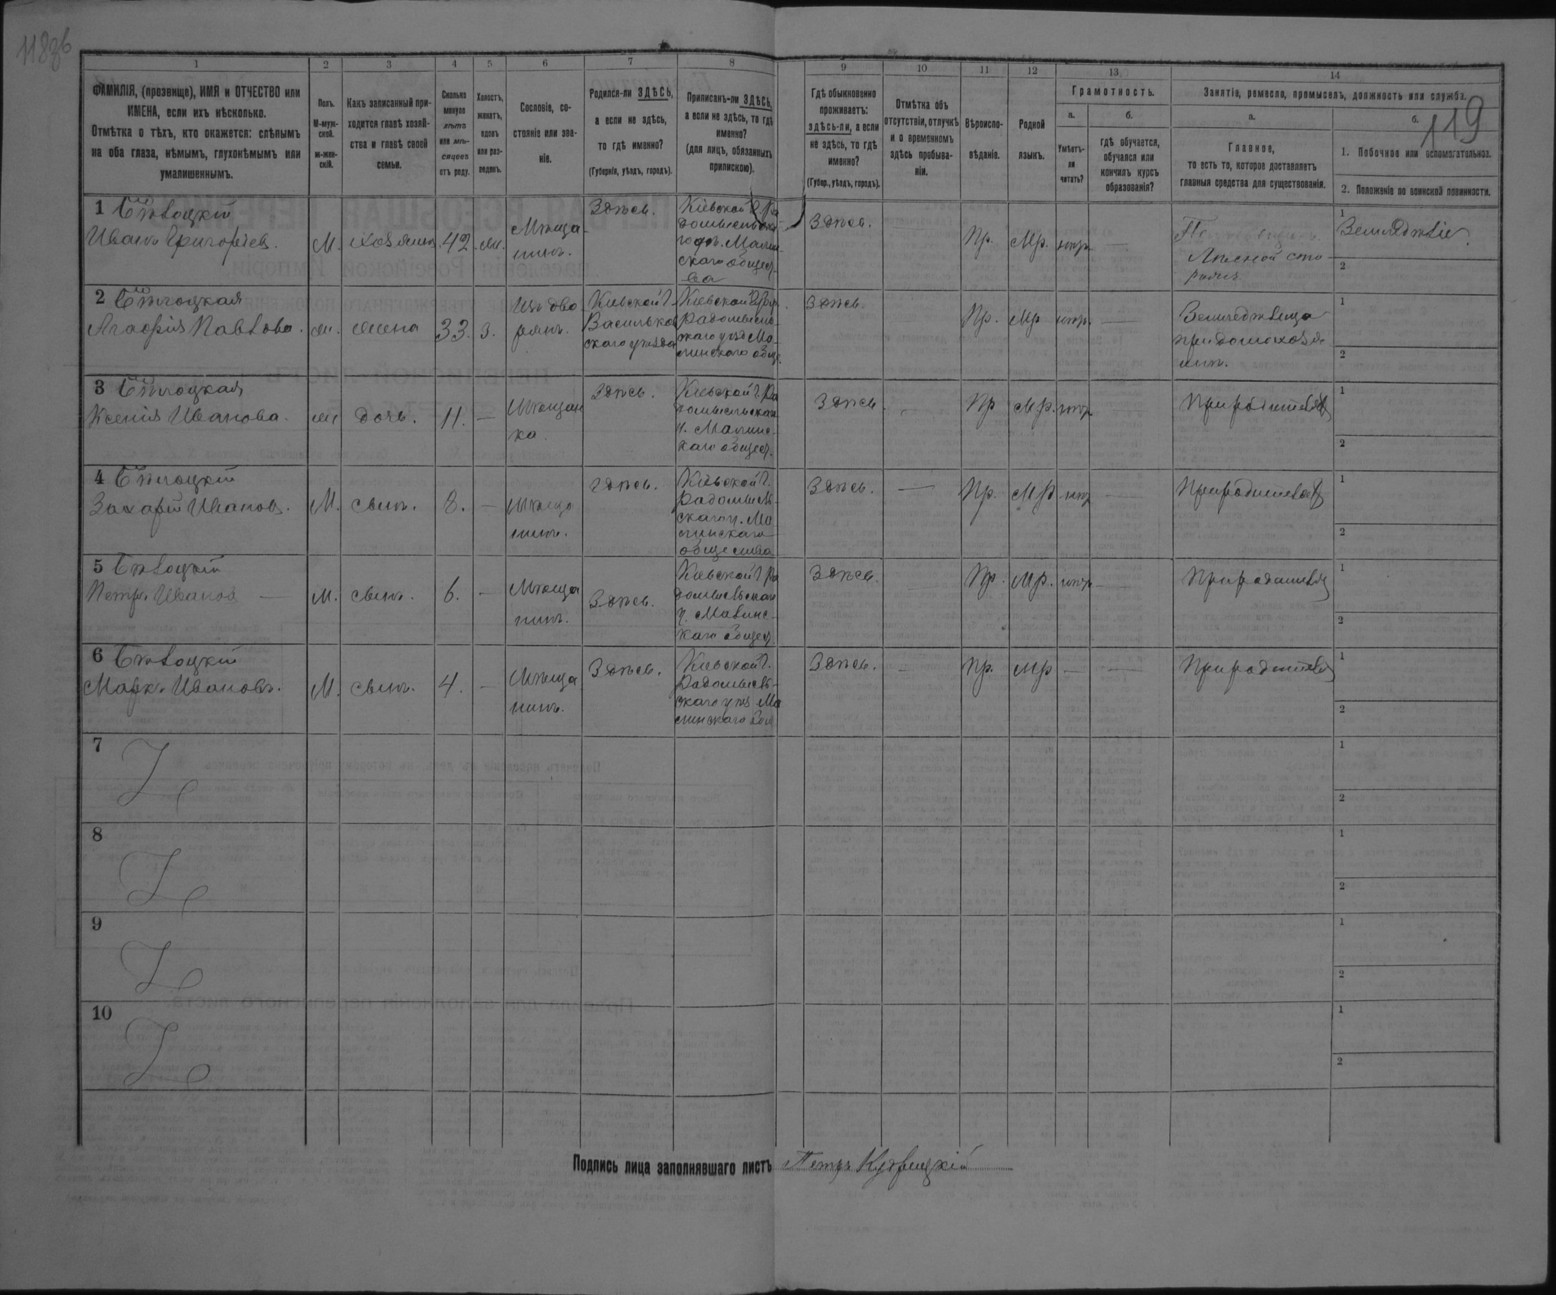 118об
119
1 2 3 4 5 6 7 8 9 10 11 12 13 14
ФАМИЛІЯ, (прозвище), ИМЯ и ОТЧЕСТВО или
ИМЕНА, если ихъ нѣсколько.
Отмѣтка о тѣхъ, кто окажется: слѣпымъ
на оба глаза, нѣмымъ, глухонѣмымъ или
умалишеннымъ.
Полъ.
М-муж-
ской.
ж-жен-
скій.
Какъ записанный при-
ходится главѣ хозяй-
ства и главѣ своей
семьи.
Сколько
минуло
лѣтъ
или мѣ-
сяцевъ
отъ роду.
Холостъ,
женатъ,
вдовъ
или раз-
веденъ.
Сословіе, со-
стояніе или зва-
ніе.
Родился-ли ЗДѢСЬ,
а если не здѣсь,
то гдѣ именно?
(Губернія, уѣздъ, городъ).
Приписанъ-ли ЗДѢСЬ,
а если не здѣсь, то гдѣ
именно?
(для лицъ, обязанныхъ
припискою).
Гдѣ обыкновенно
проживаетъ:
здѣсь-ли, а если
не здѣсь, то гдѣ
именно?
(Губер., уѣздъ, городъ).
Отмѣтка объ
отсутствіи, отлучкѣ
и о временномъ
здѣсь пребыва-
ніи.
Вѣроиспо-
вѣданіе.
Родной
языкъ.
Грамотность.
а.
Умѣетъ-
ли
читать?
б.
гдѣ обучается,
обучался или
кончилъ курсъ
образованія?
Занятіе, ремесло, промыселъ, должность или служба.
а.
Главное,
то есть то, которое доставляетъ
главныя средства для существованія.
б.
1. Побочное или вспомогательное.
2. Положеніе по воинской повинности.
1 Бѣлоцкій
Иванъ Григорьев.
М. хозяинъ 42 ж.
Мѣща
нинъ.
Здѣсь.
Кіевской г. Ра
домысльска
го у. Малин
скаго общес
ва
Здѣсь. Пр. Мр. негр. —
Лѣсной сто
рожъ
1 Земледѣліе.
2
2 Бѣлоцкая
Агафія Павлова.
ж. жена 33. з.
Изъ дво
рянъ.
Кіевской г.
Васильков
скаго уѣзда
Кіевской губ.
Радомысль-
скаго уѣз Ма-
линскаго общ.
Здѣсь. Пр. Мр негр. —
Земледѣлица
при домохозя
инѣ.
1
2
3 Бѣлоцкая
Ксенія Иванова.
ж дочь. 11. —
Мѣщан
ка.
Здѣсь.
Кіевской г. Ра
домысльскаго
у. Малинс-
каго общес.
Здѣсь. Пр Мр. негр
При родителях
1
2
4 Бѣлоцкій
Захарій Иванов.
М. сынъ. 8. —
Мѣща
нинъ.
Здѣсь.
Кіевской г.
Радомысль-
скаго у. Ма
линскаго
общества
Здѣсь. — Пр. Мр негр —
При родителях
1
2
5 Бѣлоцкій
Петръ Иванов —
М. сынъ. 6. —
Мѣща
нинъ.
Здѣсь.
Кіевской г. Ра
домысльскаго
у. Малинс-
каго общес
Здѣсь. Пр. Мр. негр —
При родителях
1
2
6 Бѣлоцкій
Маркъ Ивановъ.
М. сынъ. 4. —
Мѣща
нинъ.
Здѣсь.
Кіевской г.
Радомысль-
скаго уѣз Ма
линскаго
Здѣсь. — Пр. Мр — —
При родителях
1
2
7
1
2
8
1
2
9
1
2
10
1
2
Подпись лица заполнявшаго листъ Петръ